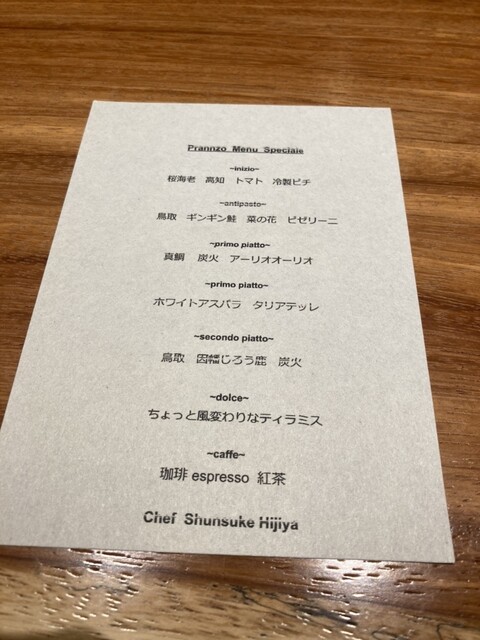 Prannzo Menu Speciale
~inizio~
桜海老 高知 トマト 冷製ピチ
~antipasto~
鳥取 ギンギン鮭 菜の花 ピゼリーニ
~primo piatto~
真鯛 炭火 アーリオオーリオ
~primo piatto~
ホワイトアスパラ タリアテッレ
~secondo piatto~
鳥取 因幡じろう鹿 炭火
~dolce~
ちょっと風変わりなティラミス
~caffe~
珈琲 espresso 紅茶
Chef Shunsuke Hijiya